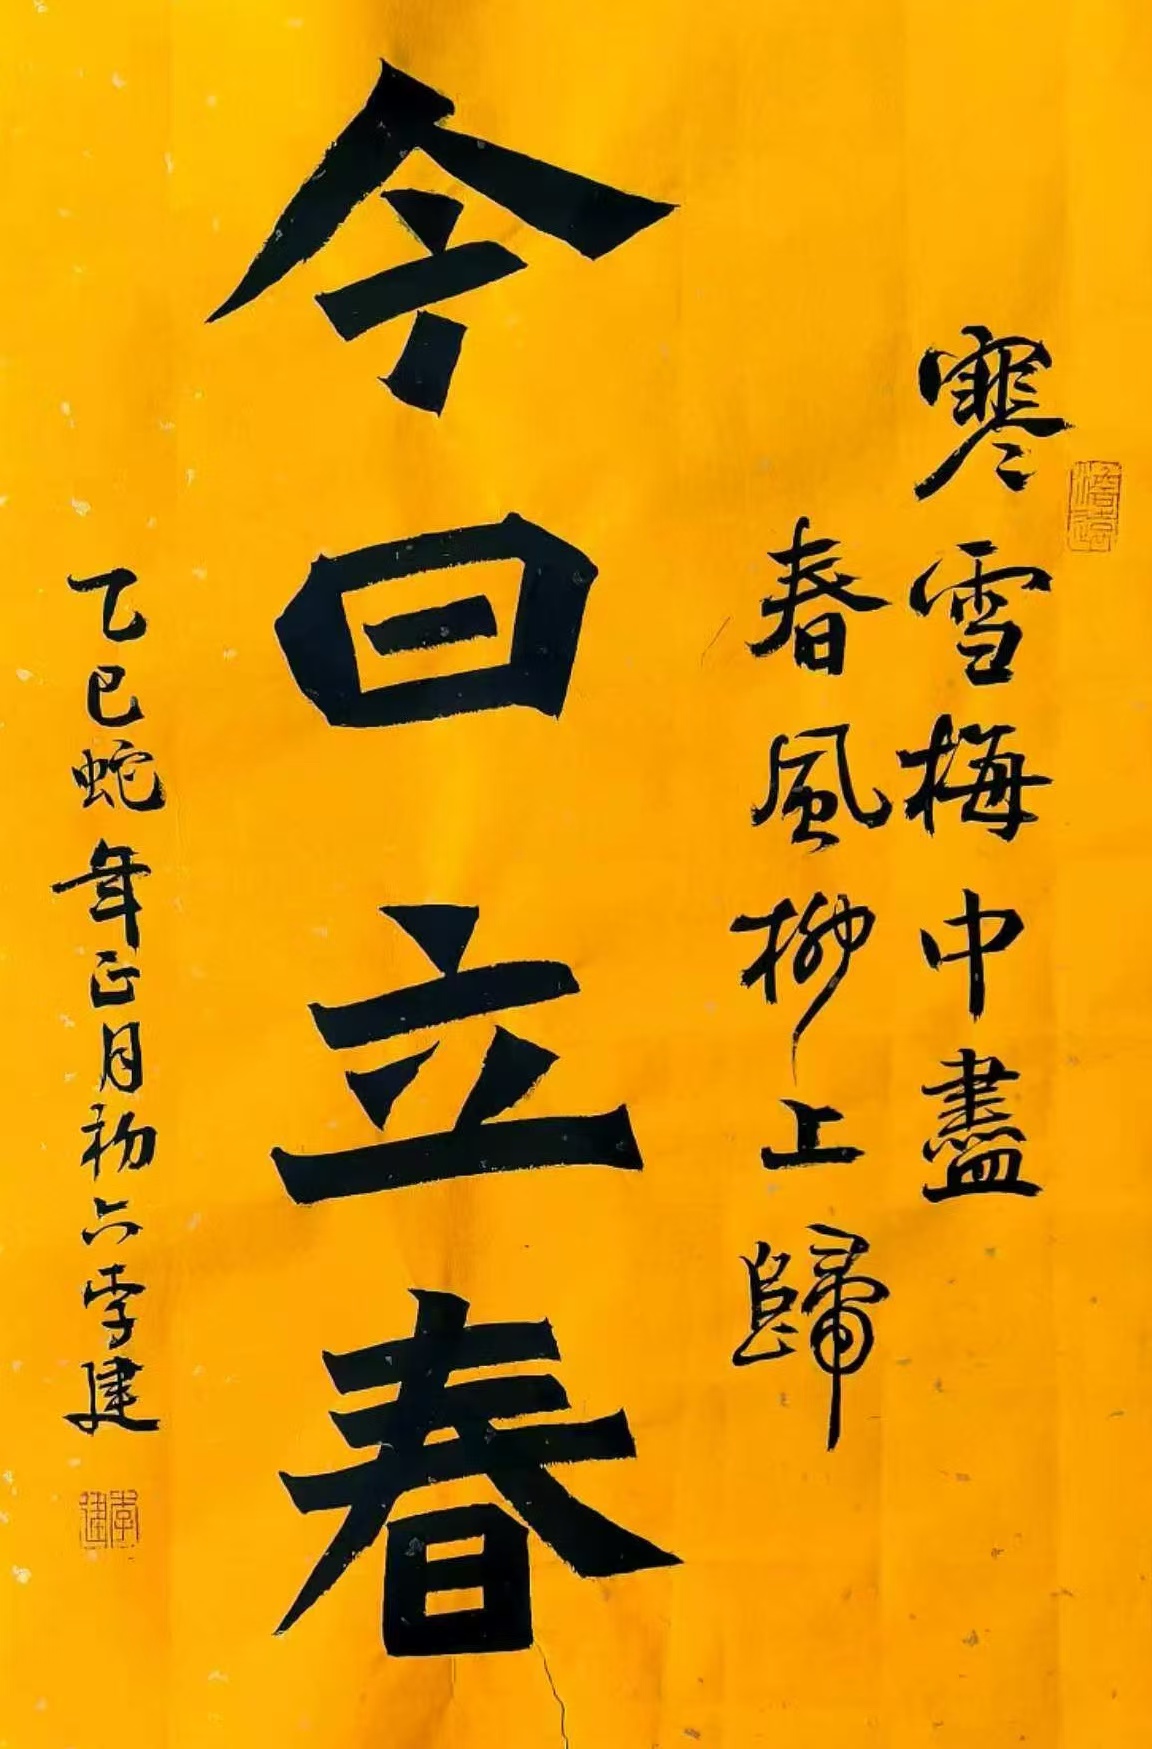 寒雪梅中盡
春風柳上歸
今日立春
乙巳蛇年正月初六李建
李建